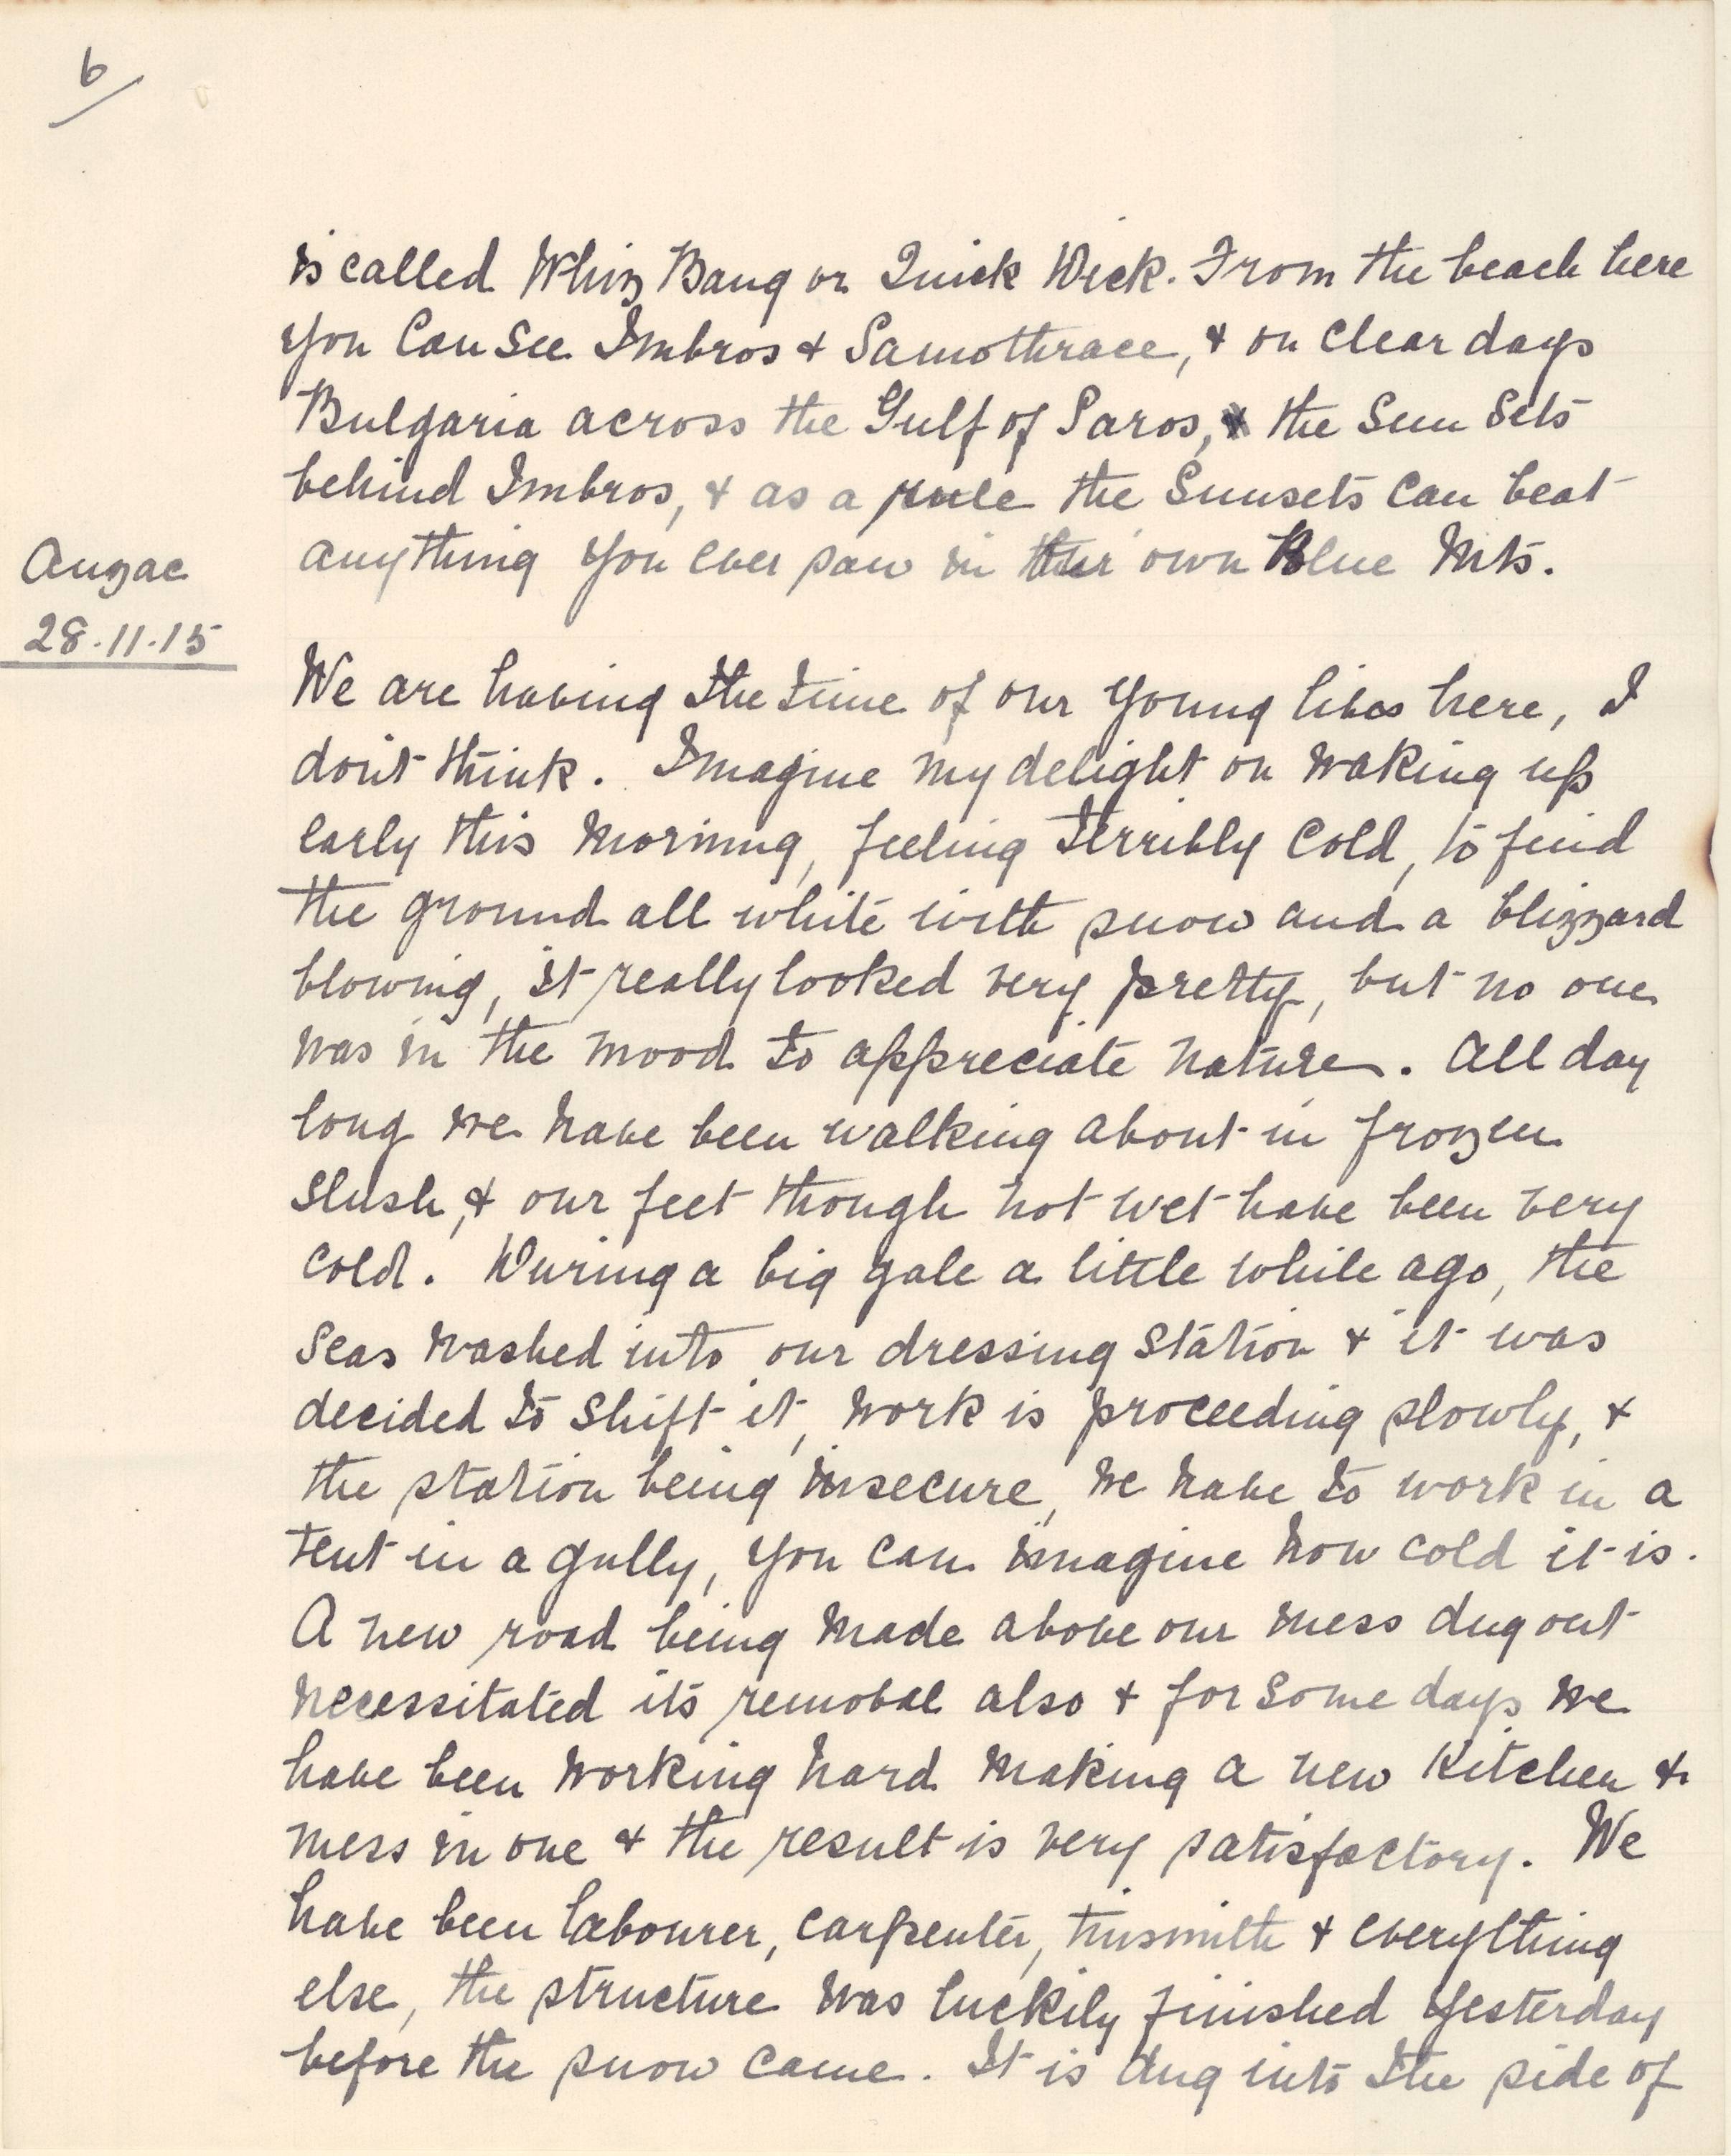 6/
is called Whiz Bang or Quick Dick. From the beach here
you can see Imbros & Samothrace, & on clear days
Bulgaria across the Gulf of Saros, & the Sun Sets
behind Imbros, & as a rule the Sunsets can beat
anything you ever saw in our own Blue Mts.
Anzac
28.11.15
We are having the time of our young lives here, I
don't think. Imagine my delight on waking up
early this morning, feeling terribly cold, to find
the ground all white with snow and a blizzard
blowing, it really looked very pretty, but no one
was in the mood to appreciate nature. All day
long we have been walking about in frozen
slush, & our feet though not wet have been very
cold. During a big gale a little while ago, the
seas washed into our dressing station & it was
decided to shift it, work is proceeding slowly, &
the station being insecure, we have to work in a
tent in a gully, you can imagine how cold it is.
A new road being made above our mess dug out
necessitated its removal also & for some days we
have been working hard making a new kitchen &
mess in one & the result is very satisfactory. We
have been labourer, carpenter, tinsmith & everything
else, the structure was luckily finished yesterday
before the snow came. It is dug into the side of